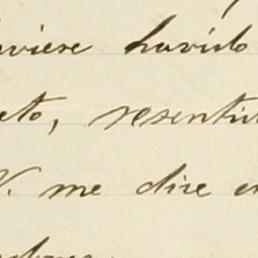 uviese havido
eto, resentid
V. me dice en